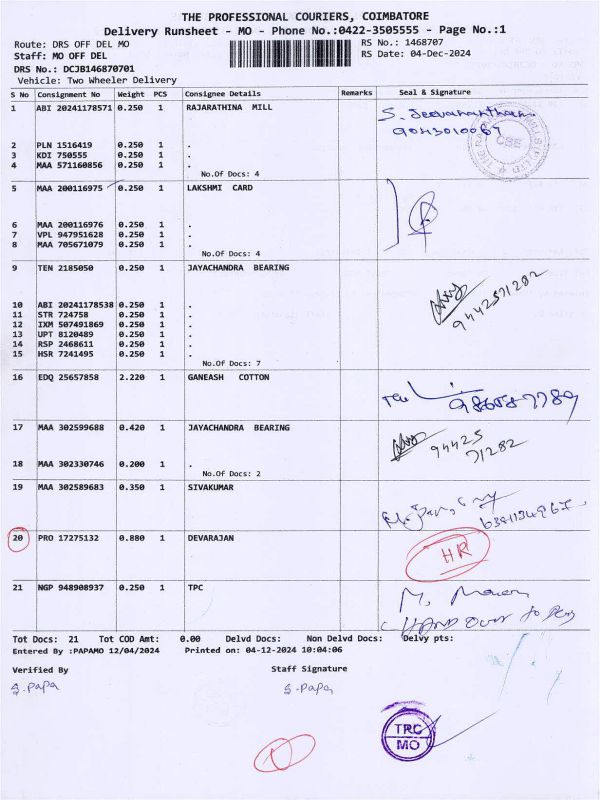 THE PROFESSIONAL COURIERS, COIMBATORE
Delivery Runsheet - MO - Phone No.:0422-3505555 - Page No.:1
Route: DRS OFF DEL MO RS No.: 1468707
Staff: MO OFF DEL RS Date: 04-Dec-2024
DRS No.: DCJB146870701
Vehicle: Two Wheeler Delivery
S No Consignment No Weight PCS Consignee Details Remarks Seal & Signature
1 ABI 20241178571 0.250 1 RAJARATHINA MILL
S. Jeevananthan
9043010067
CBE
2 PLN 1516419 0.250 1 .
3 KDI 750555 0.250 1 .
4 MAA 571160856 0.250 1 .
No.Of Docs: 4
5 MAA 200116975 0.250 1 LAKSHMI CARD
6 MAA 200116976 0.250 1 .
7 VPL 947951628 0.250 1 .
8 MAA 705671079 0.250 1 .
No.Of Docs: 4
9 TEN 2185050 0.250 1 JAYACHANDRA BEARING
9442571282
10 ABI 20241178538 0.250 1 .
11 STR 724758 0.250 1 .
12 IXM 507491869 0.250 1 .
13 UPT 8120489 0.250 1 .
14 RSP 2468611 0.250 1 .
15 HSR 7241495 0.250 1 .
No.Of Docs: 7
16 EDQ 25657858 2.220 1 GANEASH COTTON
17 MAA 302599688 0.420 1 JAYACHANDRA BEARING
94425
71282
18 MAA 302330746 0.200 1 .
No.Of Docs: 2
19 MAA 302589683 0.350 1 SIVAKUMAR
20 PRO 17275132 0.880 1 DEVARAJAN
HR
21 NGP 948908937 0.250 1 TPC
HAND Over to
Tot Docs: 21 Tot COD Amt: 0.00 Delvd Docs: Non Delvd Docs: Delvy pts:
Entered By :PAPAMO 12/04/2024 Printed on: 04-12-2024 10:04:06
Verified By Staff Signature
S. Papa S. Papa
TRC
MO
1